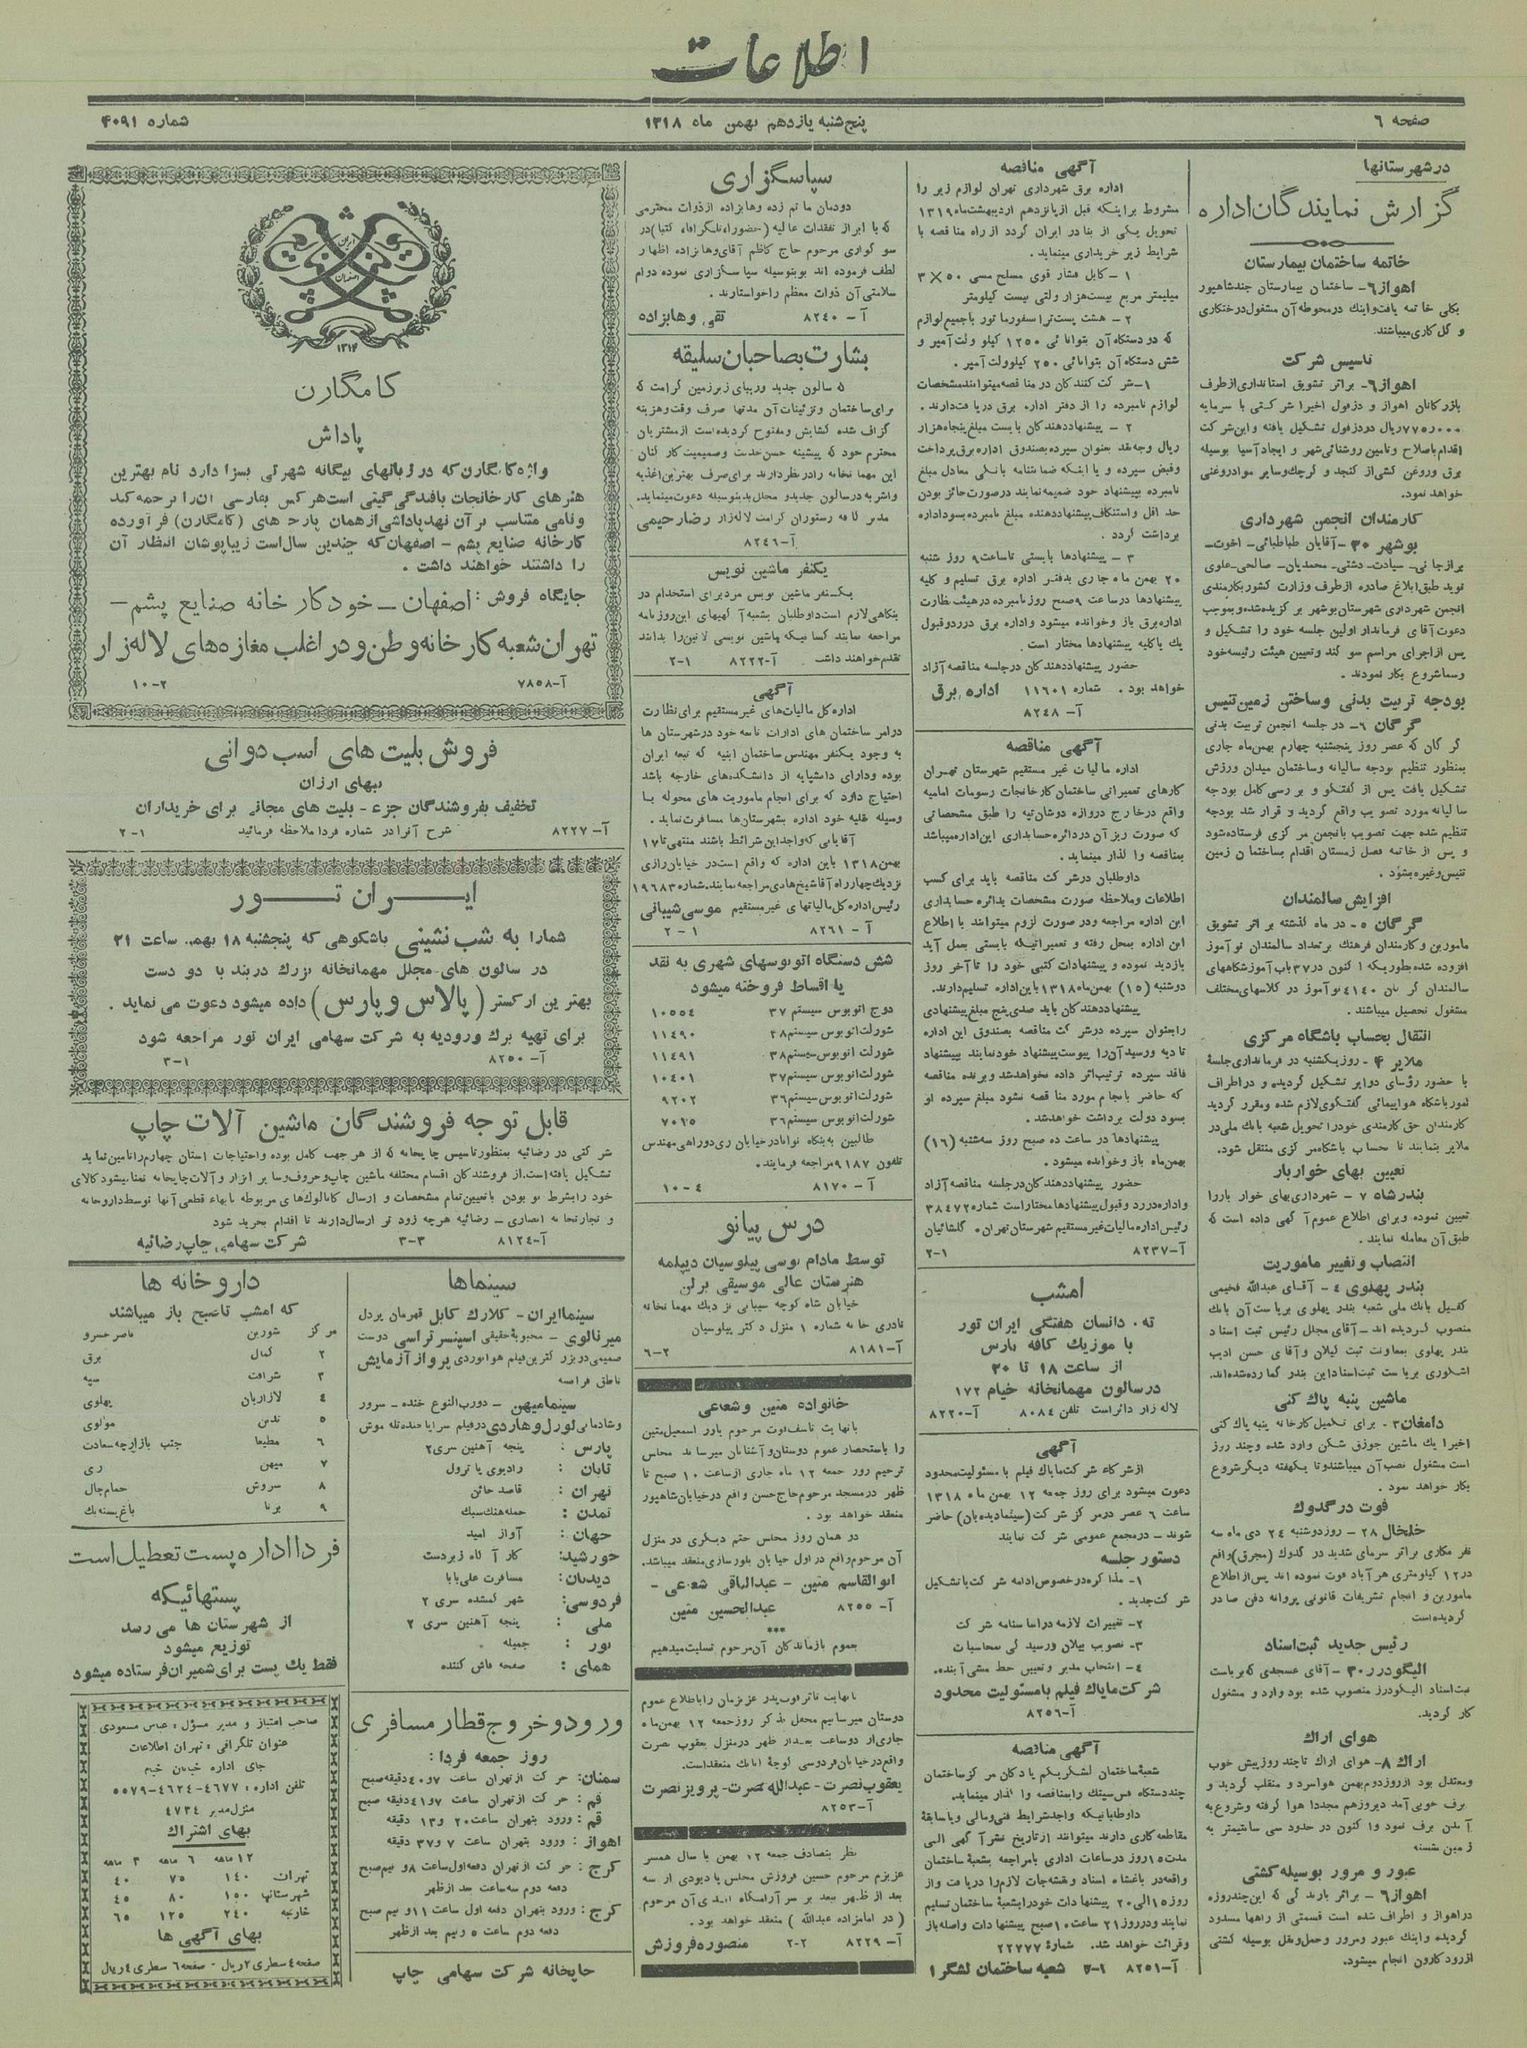 اطلاعات
صفحه ۶
پنج‌شنبه یازدهم بهمن ماه ۱۳۱۸
شماره ۴۰۹۱
در شهرستانها
گزارش نمایندگان اداره
خاتمه ساختمان بیمارستان
اهواز ۶- ساختمان بیمارستان جندشاهپور
بکلی خاتمه یافت و اینك در محوطه آن مشغول درختکاری
و گل کاری میباشند.
تاسیس شرکت
اهواز ۶- براثر تشویق استانداری از طرف
بازرگانان اهواز و دزفول اخیرا شرکتی با سرمایه
۷۷۵۰۰۰ ریال در دزفول تشکیل یافته و این شرکت
اقدام باصلاح و تامین روشنائی شهر و ایجاد آسیا بوسیله
برق و روغن کشی از کنجد و کرچك و سایر مواد روغنی
خواهد نمود.
کارمندان انجمن شهرداری
بوشهر ۳۰- آقایان طباطبائی- اخوت-
برازجانی- سیادت- دشتی- محمدیان- صالحی- علوی
نوید طبق ابلاغ صادره از طرف وزارت کشور بکارمندی
انجمن شهرداری شهرستان بوشهر برگزیده شد و بموجب
دعوت آقای فرماندار اولین جلسه خود را تشکیل و
پس از اجرای مراسم سوگند و تعیین هیئت رئیسه خود
رسما شروع بکار نمودند.
بودجه تربیت بدنی و ساختن زمین تنیس
گرگان ۶- در جلسه انجمن تربیت بدنی
گرگان که عصر روز پنجشنبه چهارم بهمن ماه جاری
بمنظور تنظیم بودجه سالیانه و ساختمان میدان ورزش
تشکیل یافت پس از گفتگو و بررسی کامل بودجه
سالیانه مورد تصویب واقع گردید و قرار شد بودجه
تنظیم شده جهت تصویب بانجمن مرکزی فرستاده شود
و پس از خاتمه فصل زمستان اقدام بساختمان زمین
تنیس و غیره بشود.
افزایش سالمندان
گرگان ۵- در ماه گذشته بر اثر تشویق
مامورین و کارمندان فرهنك بر تعداد سالمندان نوآموز
افزوده شده بطوریکه اکنون در ۳۷ باب آموزشگاههای
سالمندان گرگان ۴۱۴۰ نوآموز در کلاسهای مختلف
مشغول تحصیل میباشند.
انتقال بحساب باشگاه مرکزی
ملایر ۴- روز یکشنبه در فرمانداری جلسهٔ
با حضور رؤسای دوایر تشکیل گردیده و در اطراف
امور باشگاه هواپیمائی گفتگوی لازم شده و مقرر گردید
کارمندان حق کارمندی خود را تحویل شعبه بانك ملی در
ملایر بنمایند تا بحساب باشگاه مرکزی منتقل شود.
تعیین بهای خواربار
بندرشاه ۷- شهرداری بهای خواربار را
تعیین نموده و برای اطلاع عموم آگهی داده است که
طبق آن معامله نمایند.
انتصاب و تغییر ماموریت
بندر پهلوی ۴- آقای عبدالله فخیمی
کفیل بانك ملی شعبه بندر پهلوی بریاست آن بانك
منصوب گردیده اند- آقای مجلل رئیس ثبت اسناد
بندر پهلوی بمعاونت ثبت گیلان و آقای حسن ادیب
اشکوری بریاست ثبت اسناد این بندر گمارده شده‌اند.
ماشین پنبه پاك کنی
دامغان ۳- برای تکمیل کارخانه پنبه پاك کنی
اخیرا یك ماشین جوزق شکن وارد شده و چند روز
است مشغول نصب آن میباشند و تا یکهفته دیگر شروع
بکار خواهد نمود.
فوت در گدوك
خلخال ۲۸- روز دوشنبه ۲۴ دی ماه سه
نفر مکاری براثر سرمای شدید در گدوك (مجرق) واقع
در ۱۲ کیلومتری هرآباد فوت نموده اند پس از اطلاع
مامورین و انجام تشریفات قانونی پروانه دفن صادر
گردیده است
رئیس جدید ثبت اسناد
الیگودرز ۳۰- آقای عسجدی که بریاست
ثبت اسناد الیگودرز منصوب شده بود وارد و مشغول
کار گردید.
هوای اراك
اراك ۸- هوای اراك تا چند روز پیش خوب
و معتدل بود از روز دوم بهمن هوا سرد و منقلب گردید و
برف خوبی آمد دیروز هم مجددا هوا گرفته و شروع به
آمدن برف نمود و تا کنون در حدود سی سانتیمتر به
زمین نشسته
عبور و مرور بوسیله کشتی
اهواز ۶- براثر بارندگی که این چند روزه
در اهواز و اطراف شده است قسمتی از راهها مسدود
گردیده و اینك عبور و مرور و حمل و نقل بوسیله کشتی
از رود کارون انجام میشود.
آگهی مناقصه
اداره برق شهرداری تهران لوازم زیر را
مشروط براینکه قبل از پانزدهم اردیبهشت ماه ۱۳۱۹
تحویل یکی از بنادر ایران گردد از راه مناقصه با
شرایط زیر خریداری مینماید.
۱- کابل فشار قوی مسلح مسی ۵۰ × ۳
میلیمتر مربع بیست هزار ولتی بیست کیلومتر
۲- هشت پست ترانسفورماتور با جمیع لوازم
که دو دستگاه آن بتوانائی ۱۲۵۰ کیلو ولت آمپر و
شش دستگاه آن بتوانائی ۲۵۰ کیلوولت آمپر.
۱- شرکت کنندگان در مناقصه میتوانند مشخصات
لوازم نامبرده را از دفتر اداره برق دریافت دارند.
۲- پیشنهاد دهندگان بایست مبلغ پنجاه هزار
ریال وجه نقد بعنوان سپرده بصندوق اداره برق پرداخت
و قبض سپرده و یا اینکه ضمانتنامه بانکی معادل مبلغ
نامبرده بپیشنهاد خود ضمیمه نمایند در صورت حائز بودن
حد اقل و استنکاف پیشنهاد دهنده مبلغ نامبرده بسود اداره
برداشت گردد.
۳- پیشنهادها بایستی تا ساعت ۹ روز شنبه
۲۰ بهمن ماه جاری بدفتر اداره برق تسلیم و کلیه
پیشنهادها در ساعت ۹ صبح روز نامبرده در هیئت نظارت
اداره برق باز و خوانده میشود و اداره برق در رد و قبول
یك یا کلیه پیشنهادها مختار است.
حضور پیشنهاد دهندگان در جلسه مناقصه آزاد
خواهد بود. شماره ۱۱۶۰۱ اداره برق
آ- ۸۲۴۸
آگهی مناقصه
اداره مالیات غیر مستقیم شهرستان تهران
کارهای تعمیراتی ساختمان کارخانجات رسومات امامیه
واقع در خارج دروازه دوشان تپه را طبق مشخصاتی
که صورت ریز آن در دائره حسابداری این اداره میباشد
بمناقصه واگذار مینماید.
داوطلبان در شرکت مناقصه باید برای کسب
اطلاعات و ملاحظه صورت مشخصات بدائره حسابداری
این اداره مراجعه و در صورت لزوم میتوانند با اطلاع
این اداره بمحل رفته و تعمیراتیکه بایستی بعمل آید
بازدید نموده و پیشنهادات کتبی خود را تا آخر روز
دوشنبه (۱۵) بهمن ماه ۱۳۱۸ باین اداره تسلیم دارند.
پیشنهاد دهندگان باید صدی پنج مبلغ پیشنهادی
را بعنوان سپرده در شرکت مناقصه بصندوق این اداره
تادیه و رسید آن را پیوست پیشنهاد خود نمایند بپیشنهاد
فاقد سپرده ترتیب اثر داده نخواهد شد و برنده مناقصه
که حاضر بانجام مورد مناقصه نشود مبلغ سپرده او
بسود دولت برداشت خواهد شد.
پیشنهادها در ساعت ده صبح روز سه‌شنبه (۱۶)
بهمن ماه باز و خوانده میشود.
حضور پیشنهاد دهندگان در جلسه مناقصه آزاد
و اداره در رد و قبول پیشنهادها مختار است شماره ۳۸۴۷۲
رئیس اداره مالیات غیر مستقیم شهرستان تهران. گلشائیان
آ- ۸۲۳۷ ۱-۲
امشب
ته. دانسان هفتگی ایران تور
با موزیك کافه پارس
از ساعت ۱۸ تا ۲۰
در سالون مهمانخانه خیام ۱۷۲
لاله زار دائر است تلفن ۸۰۸۴ آ- ۸۲۲۰
آگهی
از شرکاء شرکت مایاك فیلم با مسئولیت محدود
دعوت میشود برای روز جمعه ۱۲ بهمن ماه ۱۳۱۸
ساعت ۶ عصر در مرکز شرکت (سینما دیده‌بان) حاضر
شوند- در مجمع عمومی شرکت نمایند
دستور جلسه
۱- مذاکره در خصوص ادامه شرکت یا تشکیل
شرکت جدید.
۲- تغییرات لازمه در اساسنامه شرکت
۳- تصویب بیلان و رسیدگی بمحاسبات
۴- انتخاب مدیر و تعیین خط مشی آینده.
شرکت مایاك فیلم با مسئولیت محدود
آ- ۸۲۵۶
آگهی مناقصه
شعبهٔ ساختمان لشگر یکم پادگان مرکز ساختمان
چند دستگاه فس سپتیك را بمناقصه واگذار مینماید.
داوطلبانیکه واجد شرایط فنی و مالی و یا سابقهٔ
مقاطعه کاری دارند میتوانند از تاریخ نشر آگهی الی
مدت ۱۵ روز در ساعات اداری با مراجعه بشعبهٔ ساختمان
واقعه در باغشاه اسناد و نقشه‌جات لازم را دریافت و از
روز ۱۵ الی ۲۰ پیشنهادات خود را بشعبهٔ ساختمان تسلیم
نمایند و در روز ۲۱ ساعت ۱۰ صبح پیشنهادات واصله باز
و قرائت خواهد شد. شمارهٔ ۲۲۷۷۷
آ- ۸۲۵۱ ۱-۳ شعبه ساختمان لشگر ۱
سپاسگزاری
دودمان ماتم زده وهابزاده از ذوات محترمی
که با ابراز تفقدات عالیه (حضورا، تلگرافا، کتبا) در
سوگواری مرحوم حاج کاظم آقای وهابزاده اظهار
لطف فرموده اند بدینوسیله سپاسگزاری نموده دوام
سلامتی آن ذوات معظم را خواستارند.
آ- ۸۲۴۰ تقی وهابزاده
بشارت بصاحبان سلیقه
که سالون جدید و زیبای زیرزمین گرامت که
برای ساختمان و تزئینات آن مدتها صرف وقت و هزینه
گزاف شده گشایش و مفتوح گردیده است از مشتریان
محترم خود که پیشینه حسن خدمت و صمیمیت کارکنان
این مهمانخانه را در نظر دارند برای صرف بهترین اغذیه
و اشربه در سالون جدید و مجلل بدینوسیله دعوت مینماید.
مدیر کافه رستوران گرامت لاله‌زار رضا رحیمی
آ- ۸۲۴۶
یکنفر ماشین نویس
یکنفر ماشین نویس مرد برای استخدام در
بنگاهی لازم است داوطلبان بشعبه آگهیهای این روزنامه
مراجعه نمایند کسانیکه ماشین نویسی لاتین را بدانند
تقدم خواهند داشت آ- ۸۲۲۲ ۱-۲
آگهی
اداره کل مالیات‌های غیر مستقیم برای نظارت
در امر ساختمان های ادارات تابعه خود در شهرستان ها
به وجود یکنفر مهندس ساختمان ابنیه که تبعه ایران
بوده و دارای دانشپایه از دانشکده‌های خارجه باشد
احتیاج دارد که برای انجام ماموریت های محوله با
وسیله نقلیه خود اداره بشهرستان‌ها مسافرت نماید.
آقایانی که واجد این شرائط باشند منتهی تا ۱۷
بهمن ۱۳۱۸ باین اداره که واقع است در خیابان رازی
نزدیك چهارراه آقا شیخ هادی مراجعه نمایند. شماره ۱۹۶۸۳
رئیس اداره کل مالیاتهای غیر مستقیم موسی شیبانی
آ- ۸۲۶۱ ۱-۲
شش دستگاه اتوبوسهای شهری به نقد
یا اقساط فروخته میشود
دوج اتوبوس سیستم ۳۷ ۱۰۵۵۴
شورلت اتوبوس سیستم ۳۸ ۱۱۴۹۰
شورلت اتوبوس سیستم ۳۸ ۱۱۴۹۱
شورلت اتوبوس سیستم ۳۷ ۱۰۴۰۱
شورلت اتوبوس سیستم ۳۶ ۹۲۰۲
شورلت اتوبوس سیستم ۳۶ ۷۰۱۵
طالبین به بنگاه توانا در خیابان ری دو راهی مهندس
تلفون ۹۱۸۷ مراجعه فرمایند.
آ- ۸۱۷۰ ۴-۱۰
درس پیانو
توسط مادام لوسی پیلوسیان دیپلمه
هنرستان عالی موسیقی برلن
خیابان شاه کوچه شیبانی نزدیك مهمانخانه
نادری خانه شماره ۱ منزل دکتر پیلوسیان
آ- ۸۱۸۱ ۲-۶
خانواده متین و شعاعی
با نهایت تاسف فوت مرحوم یاور اسمعیل متین
را باستحضار عموم دوستان و آشنایان میرساند مجلس
ترحیم روز جمعه ۱۲ ماه جاری از ساعت ۱۰ صبح تا
ظهر در مسجد مرحوم حاج حسن واقع در خیابان شاهپور
منعقد خواهد بود.
در همان روز مجلس ختم دیگری در منزل
آن مرحوم واقع در اول خیابان بلورسازی منعقد میباشد.
ابوالقاسم متین- عبدالباقی شعاعی-
آ- ۸۲۵۵ عبدالحسین متین
***
بعموم بازماندگان آن مرحوم تسلیت میدهیم
با نهایت تاثر فوت پدر عزیزمان را باطلاع عموم
دوستان میرسانیم محفل تذکر روز جمعه ۱۲ بهمن ماه
جاری از دو ساعت بعد از ظهر در منزل یعقوب نصرت
واقع در خیابان فردوسی کوچهٔ اتابك منعقد است.
یعقوب نصرت- عبدالله نصرت- پرویز نصرت
آ- ۸۲۵۳
نظر بتصادف جمعه ۱۲ بهمن با سال همسر
عزیزم مرحوم حسین فروزش مجلس یادبودی از سه
بعد از ظهر ببعد بر سر آرامگاه ابدی آن مرحوم
(در امامزاده عبدالله) منعقد خواهد بود.
آ- ۸۲۲۹ ۲-۲ منصوره فروزش
اصفهان
۱۳۱۴
کامگارن
پاداش
واژه کامگارن که در زبانهای بیگانه شهرتی بسزا دارد نام بهترین
هنرهای کارخانجات بافندگی گیتی است هر کس بفارسی آن را ترجمه کند
و نامی متناسب بر آن نهد پاداشی از همان پارچه های (کامگارن) فرآورده
کارخانه صنایع پشم- اصفهان که چندین سال است زیباپوشان انتظار آن
را داشتند خواهند داشت.
جایگاه فروش: اصفهان- خود کارخانه صنایع پشم-
تهران شعبه کارخانه وطن و در اغلب مغازه‌های لاله‌زار
آ- ۷۸۵۸ ۲-۱۰
فروش بلیت های اسب دوانی
ببهای ارزان
تخفیف بفروشندگان جزء- بلیت های مجانی برای خریداران
آ- ۸۲۲۷ شرح آنرا در شماره فردا ملاحظه فرمائید ۱-۲
ایران تور
شما را به شب نشینی باشکوهی که پنجشنبه ۱۸ بهمن ساعت ۲۱
در سالون های مجلل مهمانخانه بزرك دربند با دو دست
بهترین ارکستر (پالاس و پارس) داده میشود دعوت می نماید.
برای تهیه برك ورودیه به شرکت سهامی ایران تور مراجعه شود
آ- ۸۲۵۰ ۱-۳
قابل توجه فروشندگان ماشین آلات چاپ
شرکتی در رضائیه بمنظور تاسیس چاپخانه که از هر جهت کامل بوده و احتیاجات استان چهارم را تامین نماید
تشکیل یافته است. از فروشندگان اقسام مختلفه ماشین چاپ و حروف و سایر ابزار و آلات چاپخانه تمنا میشود کالای
خود را بشرط نو بودن با تعیین تمام مشخصات و ارسال کاتالوك‌های مربوطه با بهاء قطعی آنها توسط داروخانه
و تجارتخانه انصاری- رضائیه هرچه زودتر ارسال دارند تا اقدام بخرید شود
آ- ۸۱۲۴ ۳-۳ شرکت سهامی چاپ رضائیه
سینماها
سینما ایران- کلارك گابل قهرمان پردل
میرنالوی- محبوبهٔ حقیقی اسپنسر تراسی دوست
صمیمی در بزرگترین فیلم هوانوردی پرواز آزمایش
ناطق فرانسه
سینما میهن- دو رب‌النوع خنده- سرور
و شادمانی لورل و هاردی در فیلم سراپا خنده تله موش
پارس: پنجه آهنین سری ۲
تابان: رادیوی پاترول
تهران: قاصد خائن
تمدن: حمله هنك سبك
جهان: آواز امید
خورشید: کارآگاه زبردست
دیدبان: مسافرت علی بابا
فردوسی: شهر گمشده سری ۲
ملی: پنجه آهنین سری ۲
نور: جمیله
همای: صفحه فاش کننده
ورود و خروج قطار مسافری
روز جمعه فردا:
سمنان: حرکت از تهران ساعت ۷ و ۴۰ دقیقه صبح
قم: حرکت از تهران ساعت ۷ و ۴۱ دقیقه صبح
قم: ورود بتهران ساعت ۲۰ و ۱۳ دقیقه
اهواز: ورود بتهران ساعت ۷ و ۳۷ دقیقه
کرج: حرکت از تهران دفعه اول ساعت ۸ و نیم صبح
دفعه دوم سه ساعت بعد از ظهر
کرج: ورود بتهران دفعه اول ساعت ۱۱ و نیم صبح
دفعه دوم ساعت ۵ و نیم بعد از ظهر
چاپخانه شرکت سهامی چاپ
داروخانه ها
که امشب تا صبح باز میباشند
مرکز شورین ناصرخسرو
۲ کمال برق
۳ شرافت سپه
۴ لازاریان پهلوی
۵ تدین مولوی
۶ مطیعا جنب بازارچه سعادت
۷ میهن ری
۸ سروش حمام چال
۹ برنا باغ پسته بك
فردا اداره پست تعطیل است
پستهائیکه
از شهرستان ها می رسد
توزیع میشود
فقط یك پست برای شمیران فرستاده میشود
صاحب امتیاز و مدیر مسؤل: عباس مسعودی
عنوان تلگرافی: تهران اطلاعات
جای اداره خیابان خیام
تلفن اداره: ۴۶۷۷-۴۶۲۴-۵۵۷۹
منزل مدیر ۴۷۳۴
بهای اشتراك
۱۲ ماهه ۶ ماهه ۳ ماهه
تهران ۱۴۰ ۷۵ ۴۰
شهرستانها ۱۵۰ ۸۰ ۴۵
خارجه ۲۴۰ ۱۲۵ ۶۵
بهای آگهی ها
صفحه ۴ سطری ۲ ریال- صفحه ۶ سطری ۴ ریال